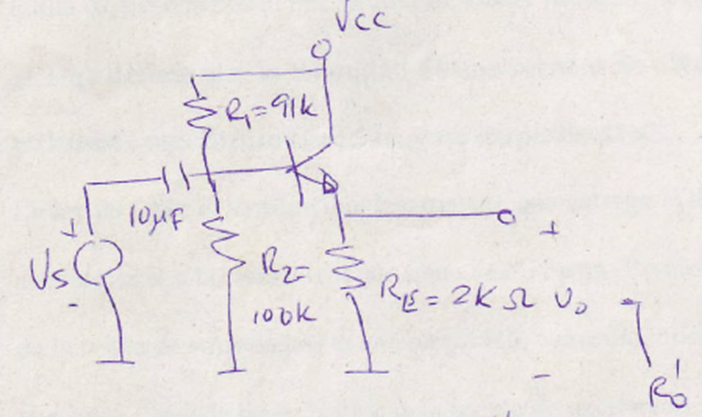 Vcc
R1=91k
10μF
+
+
Vs
R2=
100k
RE=2KΩ
Vo
-
-
Ro'